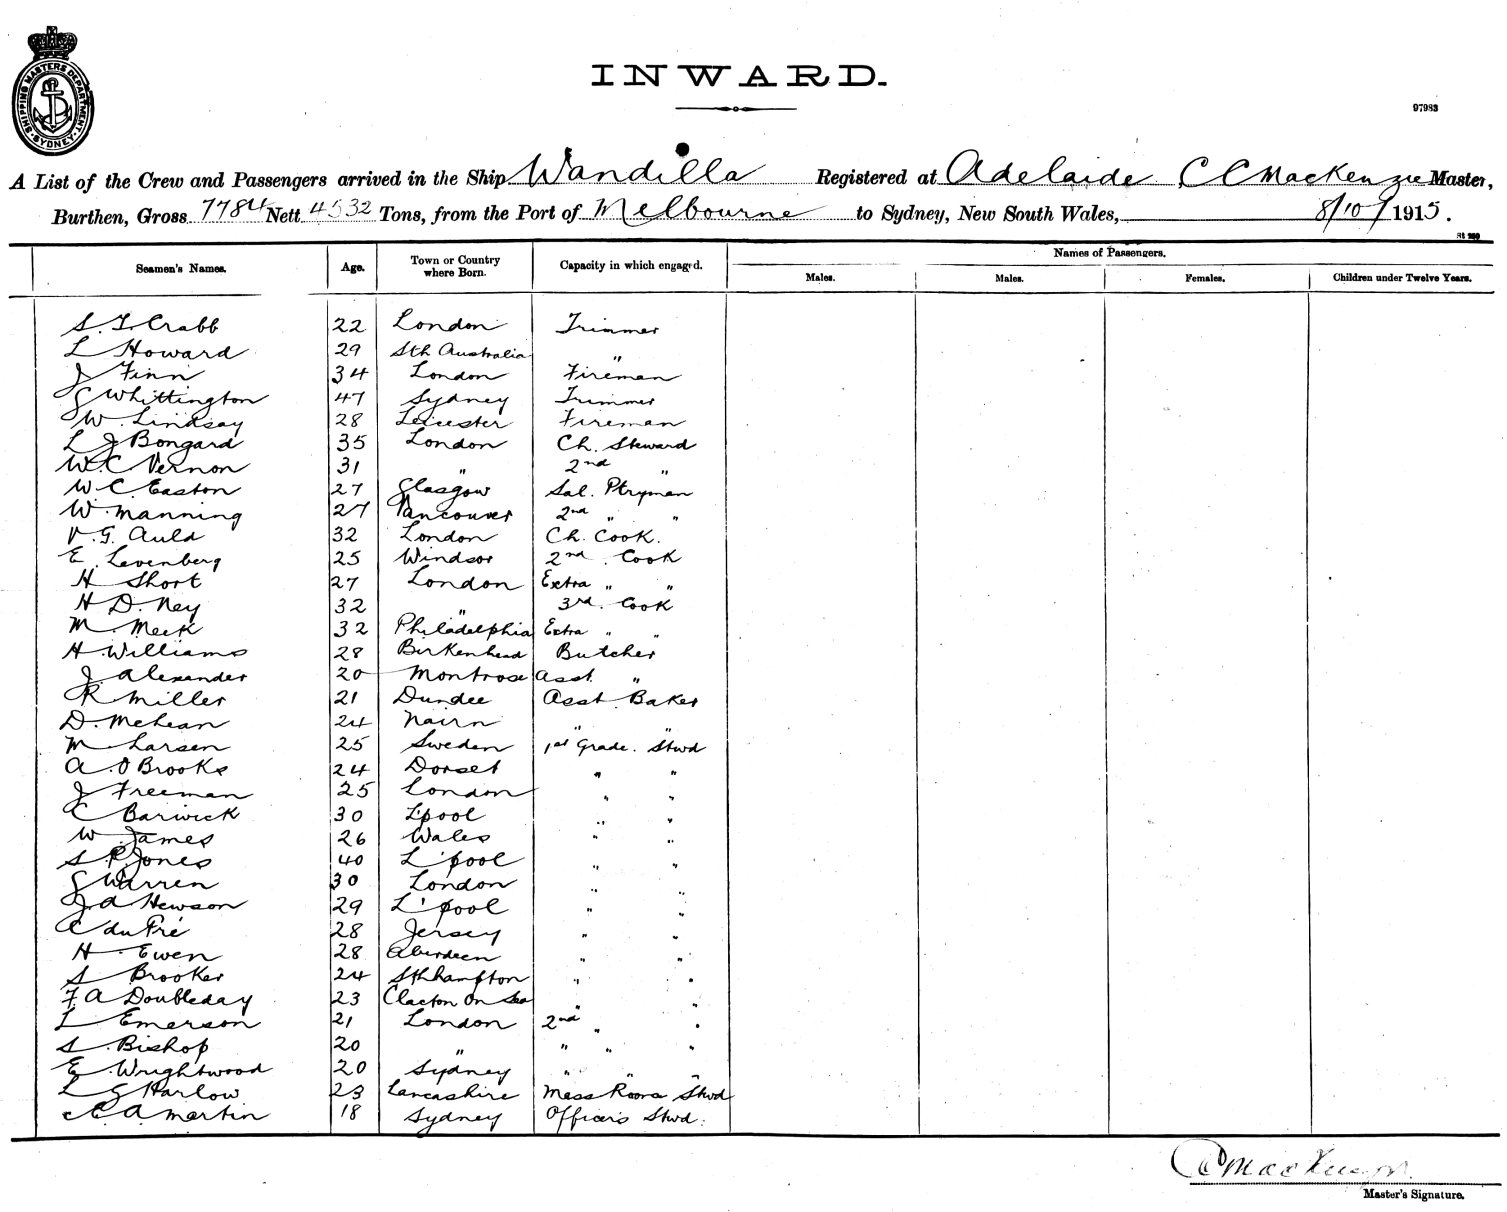 SHIPPING MASTERS DEPARTMENT SYDNEY
INWARD.
97983
A List of the Crew and Passengers arrived in the Ship Wandilla Registered at Adelaide C C MacKenzie Master,
Burthen, Gross 7784 Nett 4532 Tons, from the Port of Melbourne to Sydney, New South Wales, 8/10/1915.
St 250
Seamen's Names. Age. Town or Country where Born. Capacity in which engaged. Names of Passengers.
Males. Males. Females. Children under Twelve Years.
S. T. Crabb 22 London Trimmer
L Howard 29 Sth Australia "
J Finn 34 London Fireman
G Whittington 47 Sydney Trimmer
W. Lindsay 28 Leicester Fireman
L J Bongard 35 London Ch. Steward
W. C Vernon 31 " 2nd "
W. C. Easton 27 Glasgow Sal. Ptryman
W. Manning 27 Vancouver 2nd " "
V. G. Auld 32 London Ch. Cook.
E. Levenberg 25 Windsor 2nd. Cook
H Short 27 London Extra " "
H D. Ney 32 " 3rd. Cook
M. Meek 32 Philadelphia Extra " "
H. Williams 28 Birkenhead Butcher
J Alexander 20 Montrose Asst. "
R Miller 21 Dundee Asst Baker
D. McLean 24 Nairn " "
M Larsen 25 Sweden 1st Grade. Stwd
A. O Brooks 24 Dorset " "
J Freeman 25 London " "
C Barwick 30 L'pool " "
W James 26 Wales " "
S P. Jones 40 L'pool " "
G Warren 30 London " "
J A Hewson 29 L'pool " "
C du Fré 28 Jersey " "
H. Ewen 28 Aberdeen " "
S Brooker 24 Sthhampton " "
F A Doubleday 23 Clacton On Sea " "
L Emerson 21 London 2nd " "
S. Bishop 20 " " " "
E Wrightwood 20 Sydney " " "
L G Harlow 23 Lancashire Mess Room Stwd
C A Martin 18 Sydney Officers Stwd.
C C MacKenzie
Master's Signature.